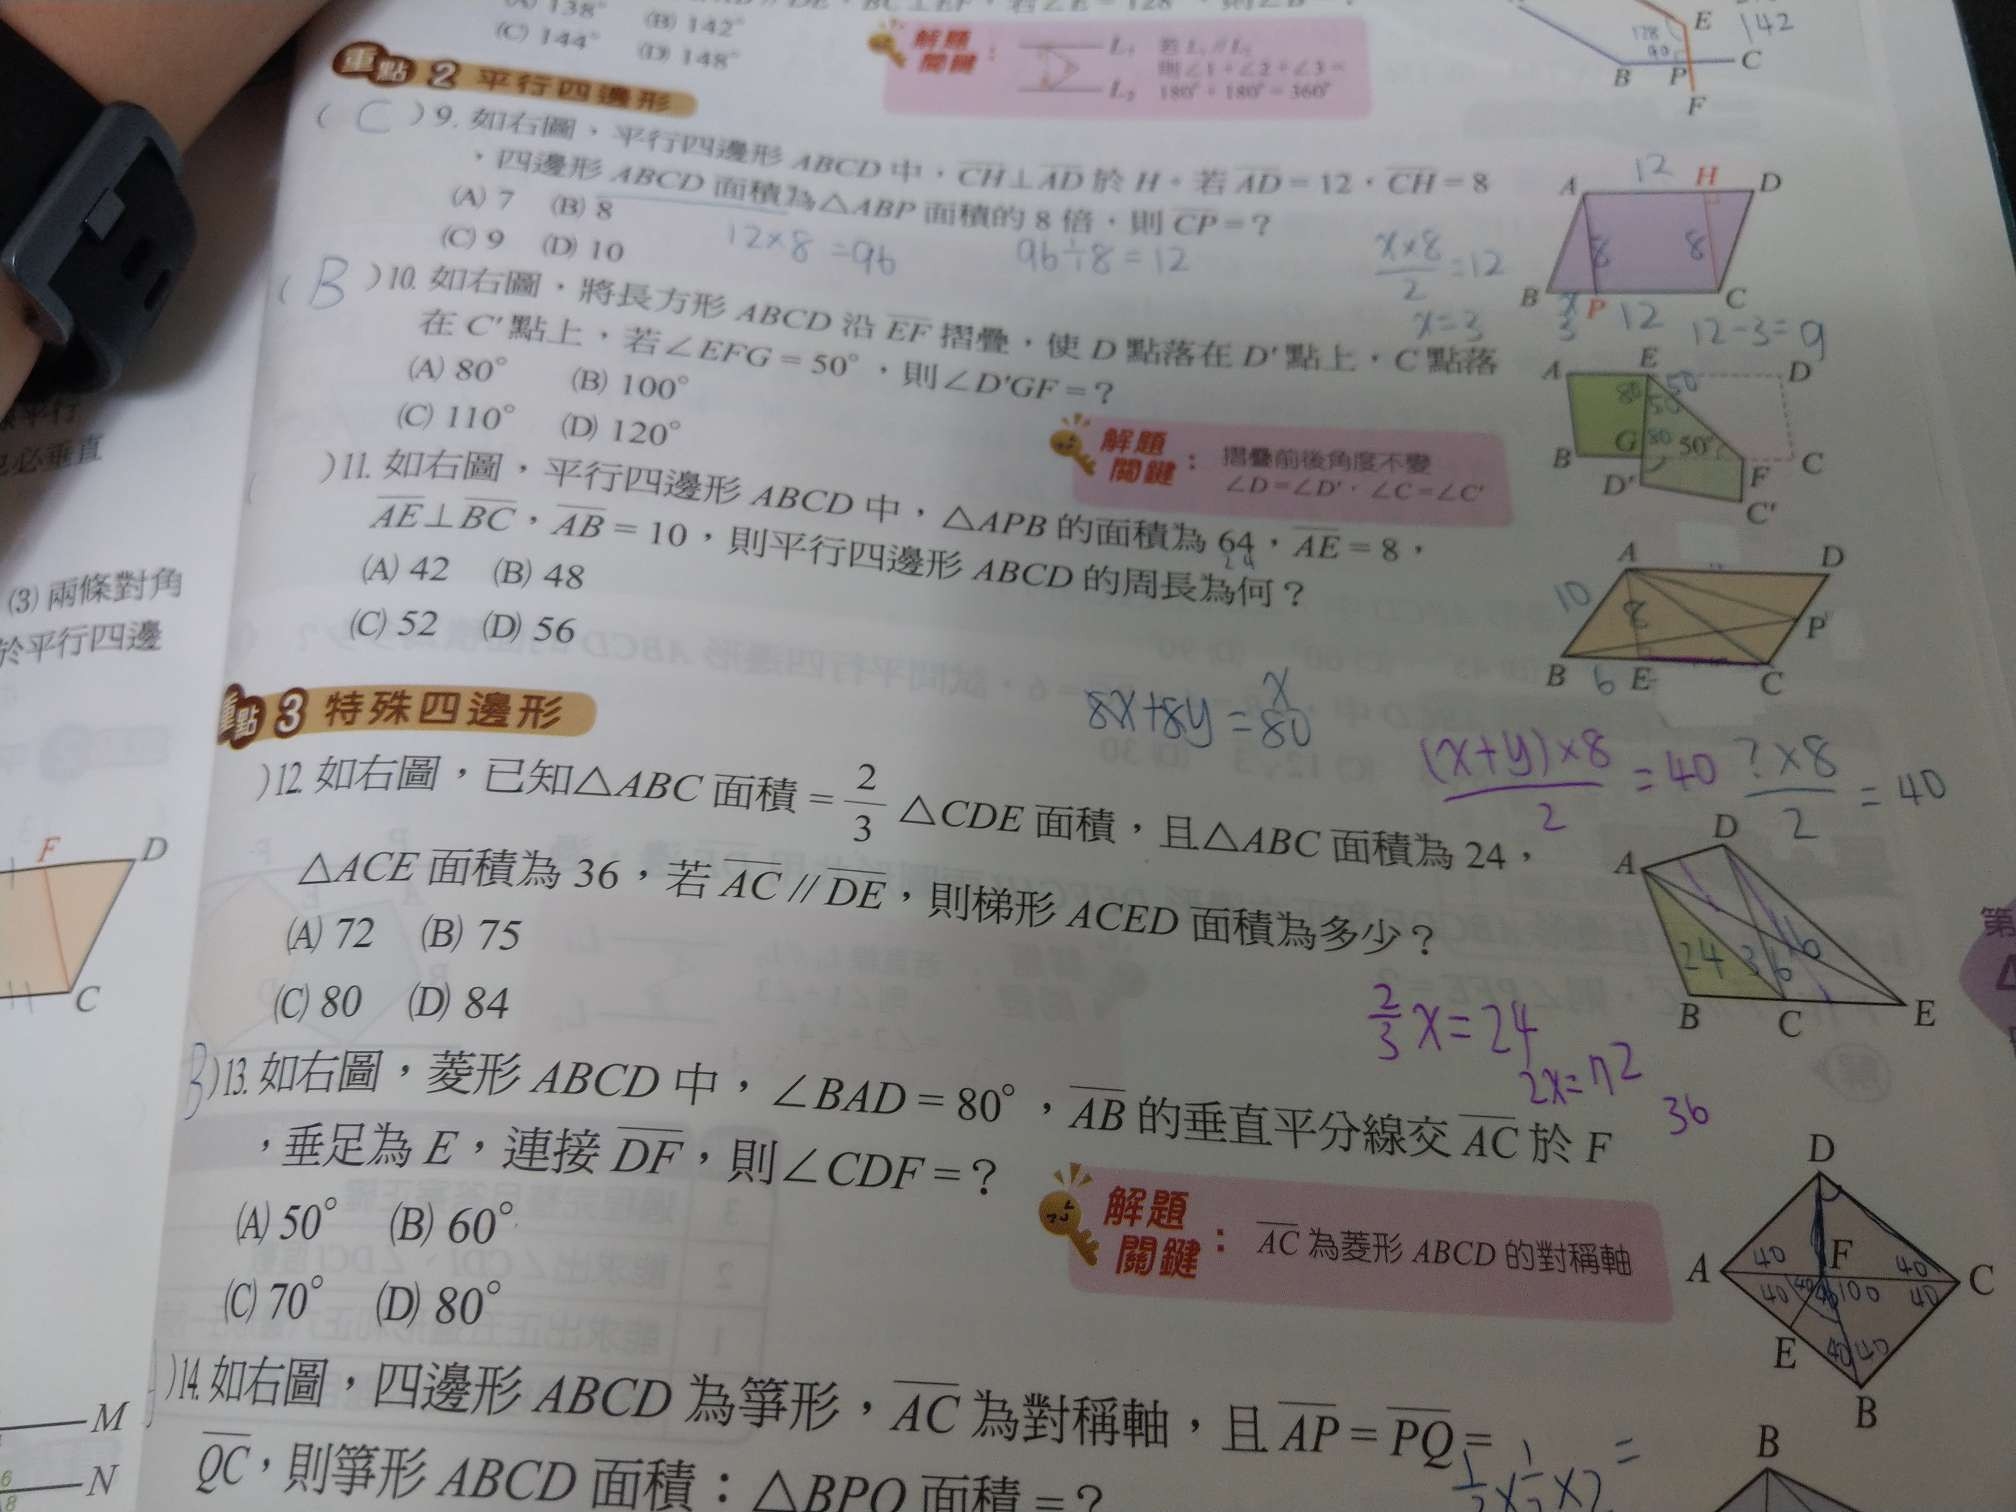 (A) 138° (B) 142°
(C) 144° (D) 148°
解題關鍵：
L₁ 若 L₁∥L₂
則∠1+∠2+∠3=
L₂ 180°+180°=360°
E 142
128
90
B P C
F
重點 2 平行四邊形
( C )9. 如右圖，平行四邊形 ABCD 中，CH⊥AD 於 H。若 AD=12，CH=8
，四邊形 ABCD 面積為△ABP 面積的 8 倍，則 CP=？
(A) 7 (B) 8
(C) 9 (D) 10
12×8=96 96÷8=12 x×8/2=12
x=3
12
A H D
8 8
B x P C
3 12 12-3=9
( B )10. 如右圖，將長方形 ABCD 沿 EF 摺疊，使 D 點落在 D′ 點上，C 點落
在 C′ 點上，若∠EFG=50°，則∠D′GF=？
(A) 80° (B) 100°
(C) 110° (D) 120°
解題關鍵：摺疊前後角度不變
∠D=∠D′，∠C=∠C′
A E D
80 50 50
B G 80 50° F C
D′ C′
( )11. 如右圖，平行四邊形 ABCD 中，△APB 的面積為 64，AE=8，
24
AE⊥BC，AB=10，則平行四邊形 ABCD 的周長為何？
(A) 42 (B) 48
(C) 52 (D) 56
A D
10 8 P
B 6 E C
8x+8y=80
x
(x+y)×8/2=40 ?×8/2=40
重點 3 特殊四邊形
)12. 如右圖，已知△ABC 面積=2/3 △CDE 面積，且△ABC 面積為 24，
△ACE 面積為 36，若 AC∥DE，則梯形 ACED 面積為多少？
(A) 72 (B) 75
(C) 80 (D) 84
D
A
24 36
B C E
2/3 x=24
2x=72
36
B )13. 如右圖，菱形 ABCD 中，∠BAD=80°，AB 的垂直平分線交 AC 於 F
，垂足為 E，連接 DF，則∠CDF=？
(A) 50° (B) 60°
(C) 70° (D) 80°
解題關鍵：AC 為菱形 ABCD 的對稱軸
D
A 40 F 40 C
40 100 40
E 40 40
B
)14. 如右圖，四邊形 ABCD 為箏形，AC 為對稱軸，且 AP=PQ=
QC，則箏形 ABCD 面積：△BPQ 面積=？
B
平行
必垂直
(3) 兩條對角
於平行四邊
F D
C
M
N
6
8
第